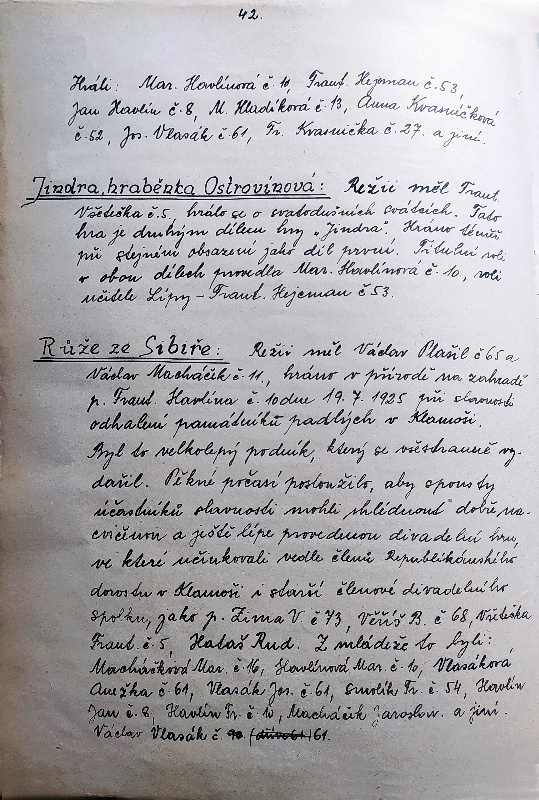 42.
Hráli: Mar. Havlínová č. 10, Frant. Hejcman č. 53,
Jan Havlín č. 8, M. Hladíková č. 13, Anna Kvasničková
č. 52, Jos. Vlasák č. 61, Fr. Kvasnička č. 27. a jiní.
Jindra, hraběnka Ostrovínová: Režii měl Frant.
Všetečka č. 5, hrálo se o svatodušních svátcích. Tato
hra je druhým dílem hry „Jindra". Hráno téměř
při stejném obsazení jako díl první. Titulní roli
v obou dílech provedla Mar. Havlínová č. 10, roli
učitele Lípy – Frant. Hejcman č 53.
Růže ze Sibiře: Režii měl Václav Plašil č 65 a
Václav Macháčik č. 11., hráno v přírodě na zahradě
p. Frant. Havlína č. 10 dne 19. 7. 1925 při slavnosti
odhalení památníků padlých v Klamoši.
Byl to velkolepý podnik, který se všestranně vy-
dařil. Pěkné počasí posloužilo, aby spousty
účastníků slavnosti mohli shlédnout dobře na-
cvičenou a ještě lépe provedenou divadelní hru,
ve které účinkovali vedle členů Republikánského
dorostu v Klamoši i starší členové divadelního
spolku, jako p. Zima V. č 73, Věříš B. č 68, Všetečka
Frant. č. 5, Hataš Rud. Z mládeže to byli:
Macháčková Mar. č. 16, Havlínová Mar. č. 10, Vlasáková
Anežka č 61, Vlasák Jos. č. 61, Smolík Fr. č. 54, Havlín
Jan č. 8, Havlín Fr. č. 10, Macháčik Jaroslav. a jiní.
Václav Vlasák č. (dříve 61) 61.